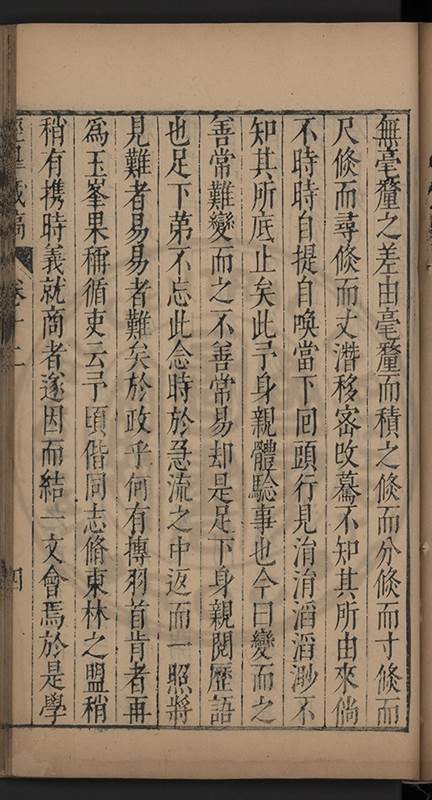 無毫釐之差由毫釐而積之倐而分倐而寸倐而
尺倐而尋倐而丈潛移密攺驀不知其所由來倘
不時時自提自喚當下囘頭行見㳙㳙滔滔渺不
知其所底止矣此予身親體驗事也今曰變而之
善常難變而之不善常易却是足下身親閱歷語
也足下第不忘此念時於急流之中返而一照將
見難者易易者難矣於政乎何有摶羽首肯者再
爲玉峯果稱循吏云予頃偕同志脩東林之盟稍
稍有携時義就商者遂因而結一文會焉於是學
卷十二
四